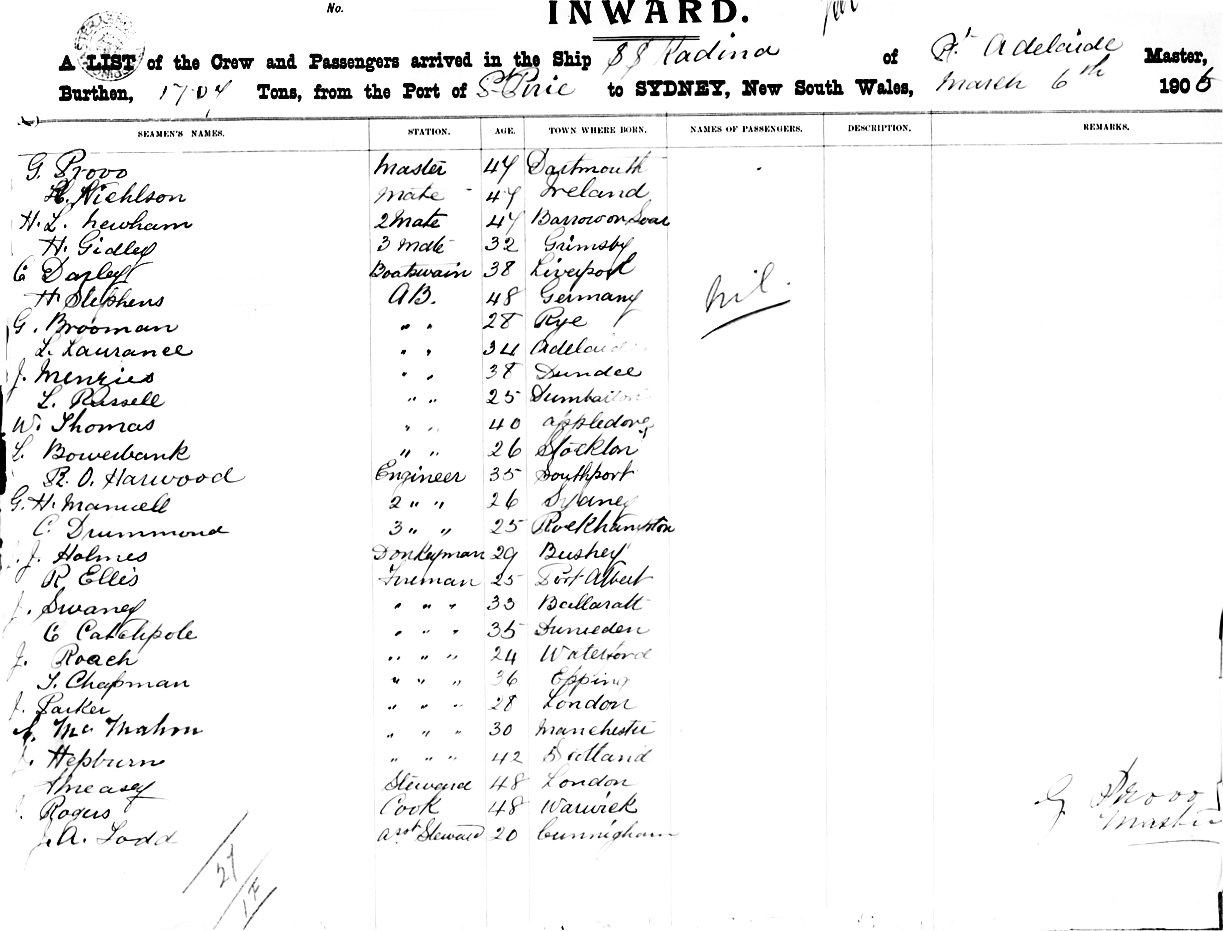 No.
INWARD.
A LIST of the Crew and Passengers arrived in the Ship SS Kadina of Pt Adelaide Master,
Burthen, 1707 Tons, from the Port of Pt Pirie to SYDNEY, New South Wales, March 6th 1905
SEAMEN'S NAMES. STATION. AGE. TOWN WHERE BORN. NAMES OF PASSENGERS. DESCRIPTION. REMARKS.
G. Provo Master 47 Dartmouth
H. Niehlson Mate 47 Ireland
H. L. Newham 2 Mate 47 Barrow on Soar
H. Gidley 3 Mate 32 Grimsby
C Dapley Boatswain 38 Liverpool
H Stephens AB. 48 Germany
nil.
G. Brooman " " 28 Rye
L. Laurance " " 34 Adelaid
J. Menzies " " 38 Dundee
L. Russell " " 25 Dumbarton
W. Thomas " " 40 Appledore
L. Bowerbank " " 26 Stockton
R. O. Harwood Engineer 35 Southport
G. H. Manuell 2 " " 26 Sydney
C. Drummond 3 " " 25 Rockhampton
J. Holmes Donkeyman 29 Bushey
R. Ellis Fireman 25 Port Albert
J. Swaney " " " 33 Ballaratt
C Catchpole " " " 35 Duneden
J. Roach " " " 24 Waterford
T. Chapman " " " 36 Epping
J. Parker " " " 28 London
Mc Mahon " " " 30 Manchester
Hepburn " " " 42
Measey Steward 48 London
Rogers Cook 48 Warwick
J. A. Todd asst Steward 20 Cunnigham
G Provo
Master
27